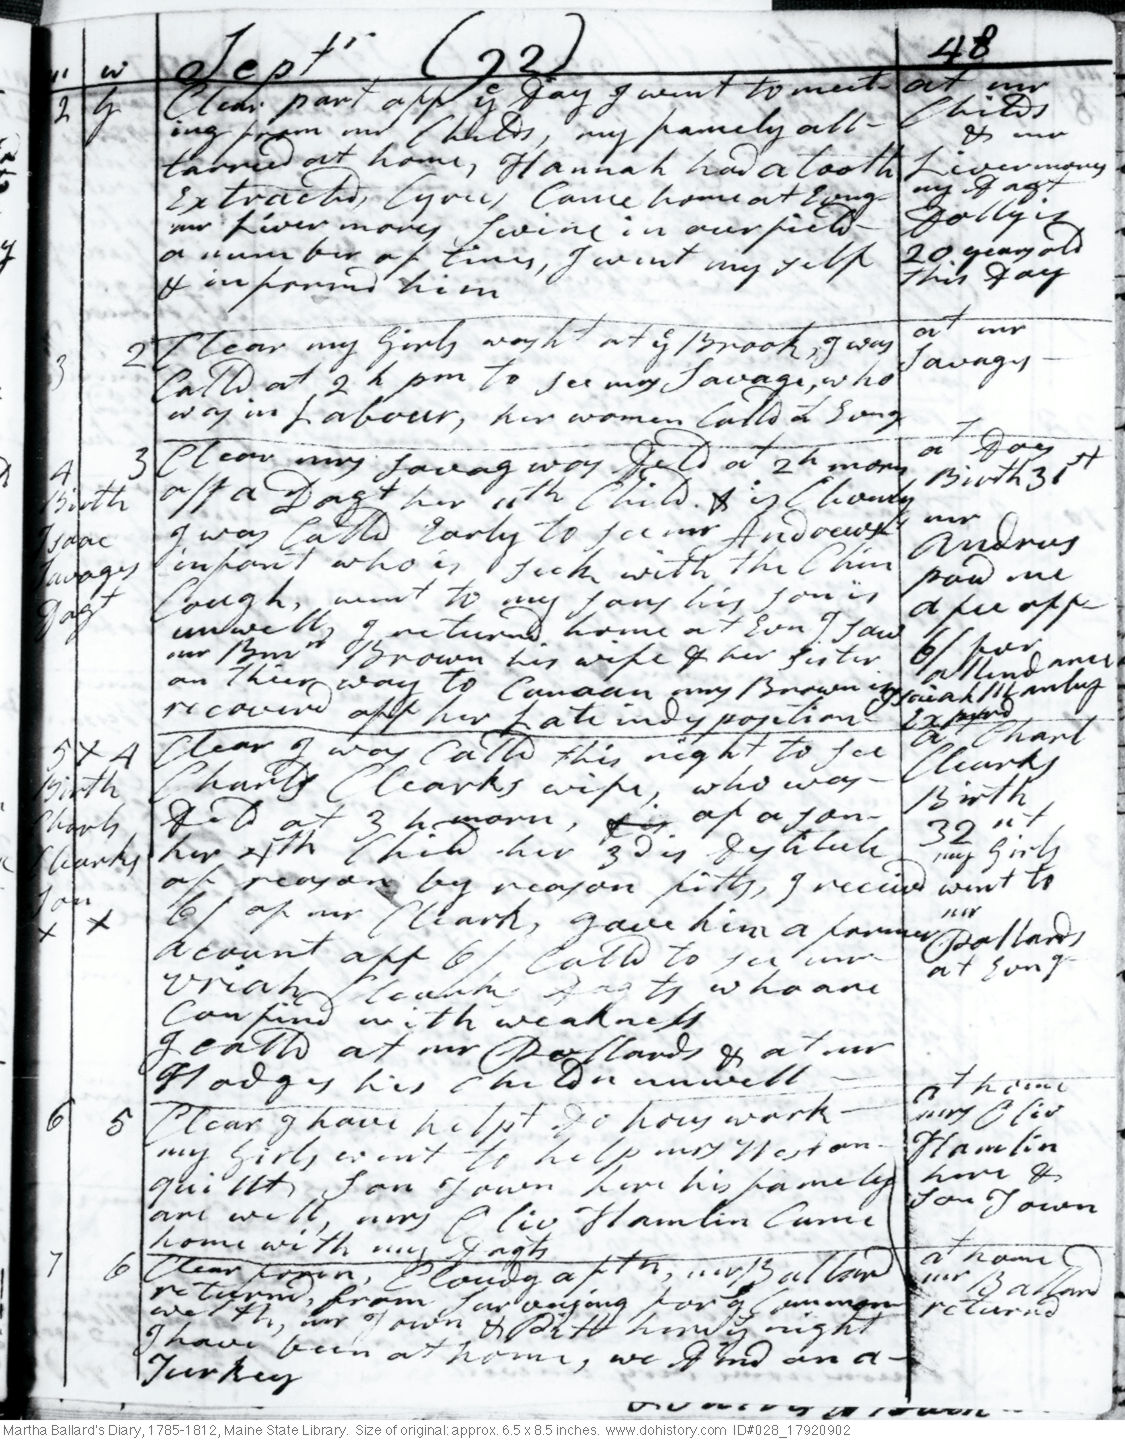 m w Sept'r (92) 48
2 g Clear part off ÿ Day I went to meet-
ing from mr Childs, my famely all
tarried at home, Hannah had a tooth
Extracted, Cyrus Came home at Evng
mr Livermores Swine in our field
a number of times, I went my self
& informd him
at mr
Childs
& mr
Livermores
my Dagt
Dolly is
20 years old
this Day
3 2 Clear my Girls washt at ÿ Brook, I was
Calld at 2 h pm to see mrs Savage, who
was in Labour, her women Calld at Evng
at mr
Savages
4 3 Clear mrs Savag was Deld at 2 h morn
off a Dagt her 11th Child & is Cleverly
I was Calld Early to see mr Andrews
infant who is sick with the Chin
Cough, went to my sons his son is
unwell, I returnd home at Evng I saw
mr Bmn Brown his wife & her sister
on thier way to Canaan mrs Brown is
recoverd off her Late indisposition
Birth
Isaac
Savages
Dagt
at Do es
Birth 31st
mr
Andrus
paid me
a fee off
6/ for
attendance
Expird
5 x 4 Clear I was Calld this night to see
Charls Clearks wife, who was
Deld at 3 h morn, of a son
her 4th Child her 3d is destitute
of reason by reason fitts, I receivd
6/ of mr Cleark, gave him a former
acount off 6/ Calld to see mr
Uriah Clearks Dagts who are
Confind with weakness
I calld at mr Pollards & at mr
Hodges his Childn unwell
Birth
Charls
Clearks
Son
x x
at Charl
Clearks
Birth
32nt
my Girls
went to
mr
Pollards
at Evng
6 5 Clear I have helpt Do hous work
my Girls went to help mrs Weston
quillt, Son Town here his famely
are well, mrs Cliv Hamlin Came
home with my Dagts
at home
mrs Cliv
Hamlin
here &
son Town
7 6 Clear forn, Cloudy aftn, mr Ballard
returnd, from Surveying for ÿ Common
welth, mr Town & Pitt here ÿ night
I have been at home, we dind on a
Turkey
at home
mr Ballard
returnd
Martha Ballard's Diary, 1785-1812, Maine State Library. Size of original: approx. 6.5 x 8.5 inches. www.dohistory.com ID#028_17920902